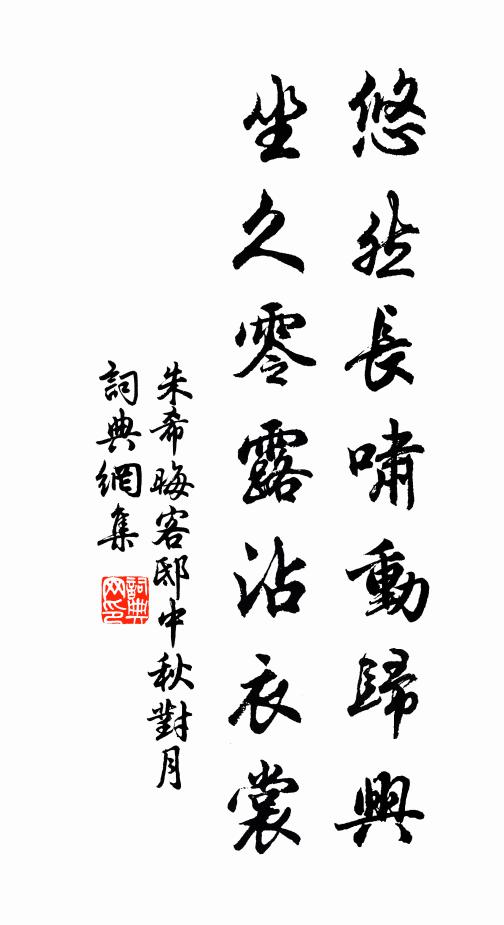 悠然長嘯動歸興
坐久零露沾衣裳
朱希晦客邸中秋對月
詞典網集
詞典網印